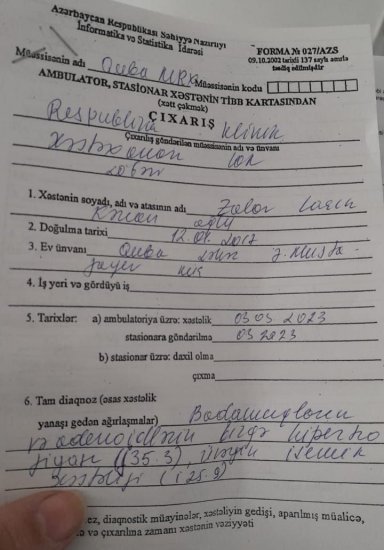 Azərbaycan Respublikası Səhiyyə Nazirliyi
İnformatika və Statistika İdarəsi
FORMA № 027/AZS
09.10.2002 tarixli 137 saylı əmrlə
təsdiq edilmişdir
Müəssisənin adı Quba MRX Müəssisənin kodu
AMBULATOR, STASİONAR XƏSTƏNİN TİBB KARTASINDAN
(xətt çəkmək)
ÇIXARIŞ
Respublika klinik
Çıxarış göndərilən müəssisənin adı və ünvanı
xəstəxanan LOR
1. Xəstənin soyadı, adı və atasının adı
oğlu
2. Doğulma tarixi 12.01.2017
3. Ev ünvanı Quba
4. İş yeri və gördüyü iş
5. Tarixlər: a) ambulatoriya üzrə: xəstəlik 03 03 2023
stasionara göndərilmə 03 2023
b) stasionar üzrə: daxil olma
çıxma
6. Tam diaqnoz (əsas xəstəlik
yanaşı gedən ağırlaşmalar) Badamcıqların
və adenoidlərin birgə hipertro
fiyası (J35.3), ürəyin işemik
xəstəliyi (i25.9)
ez, diaqnostik müayinələr, xəstəliyin gedişi, aparılmış müalicə,
və çıxarılma zamanı xəstənin vəziyyəti